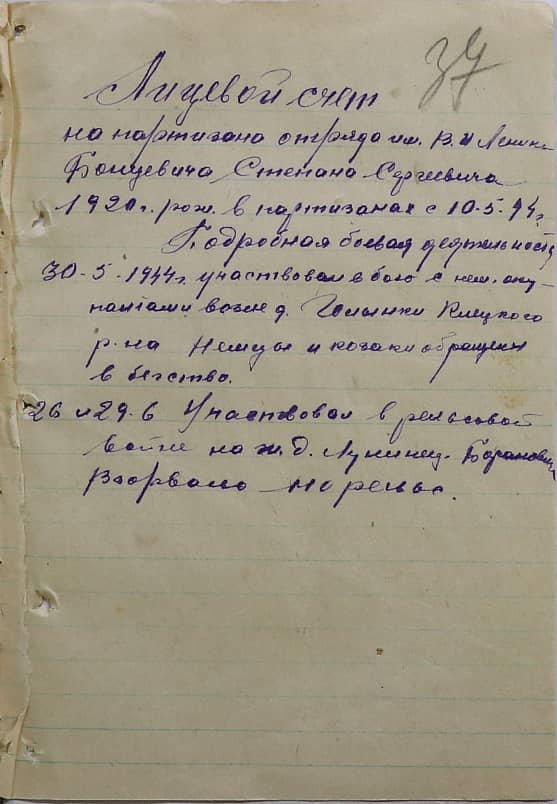 37
Лицевой счет
на партизана отряда им. В.И Ленина
Бонцевича Степана Сергеевича
192 г. рож. в партизанах с 10-5-44г
Подробная боевая деятельность
30-5-1944г. участвовал в бою с нем. оку-
пантами возле д. Голынки Клецкого
р-на Немцы и козаки обращены
в бегство.
26 и 29.6 Участвовал в рельсовой
войне на ж.д. Лунинец-Баранович
Взорвано рельс.